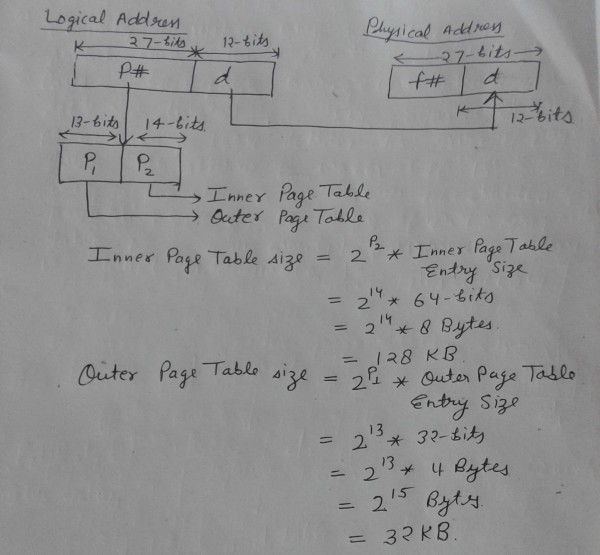 Logical Address
27-bits 12-bits
P# d
13-bits 14-bits
P1 P2
Inner Page Table
Outer Page Table
Physical Address
27-bits
f# d
12-bits
Inner Page Table size = 2^P2 * Inner Page Table
Entry Size
= 2^14 * 64-bits
= 2^14 * 8 Bytes.
= 128 KB.
Outer Page Table size = 2^P1 * Outer Page Table
Entry Size
= 2^13 * 32-bits
= 2^13 * 4 Bytes
= 2^15 Bytes.
= 32 KB.